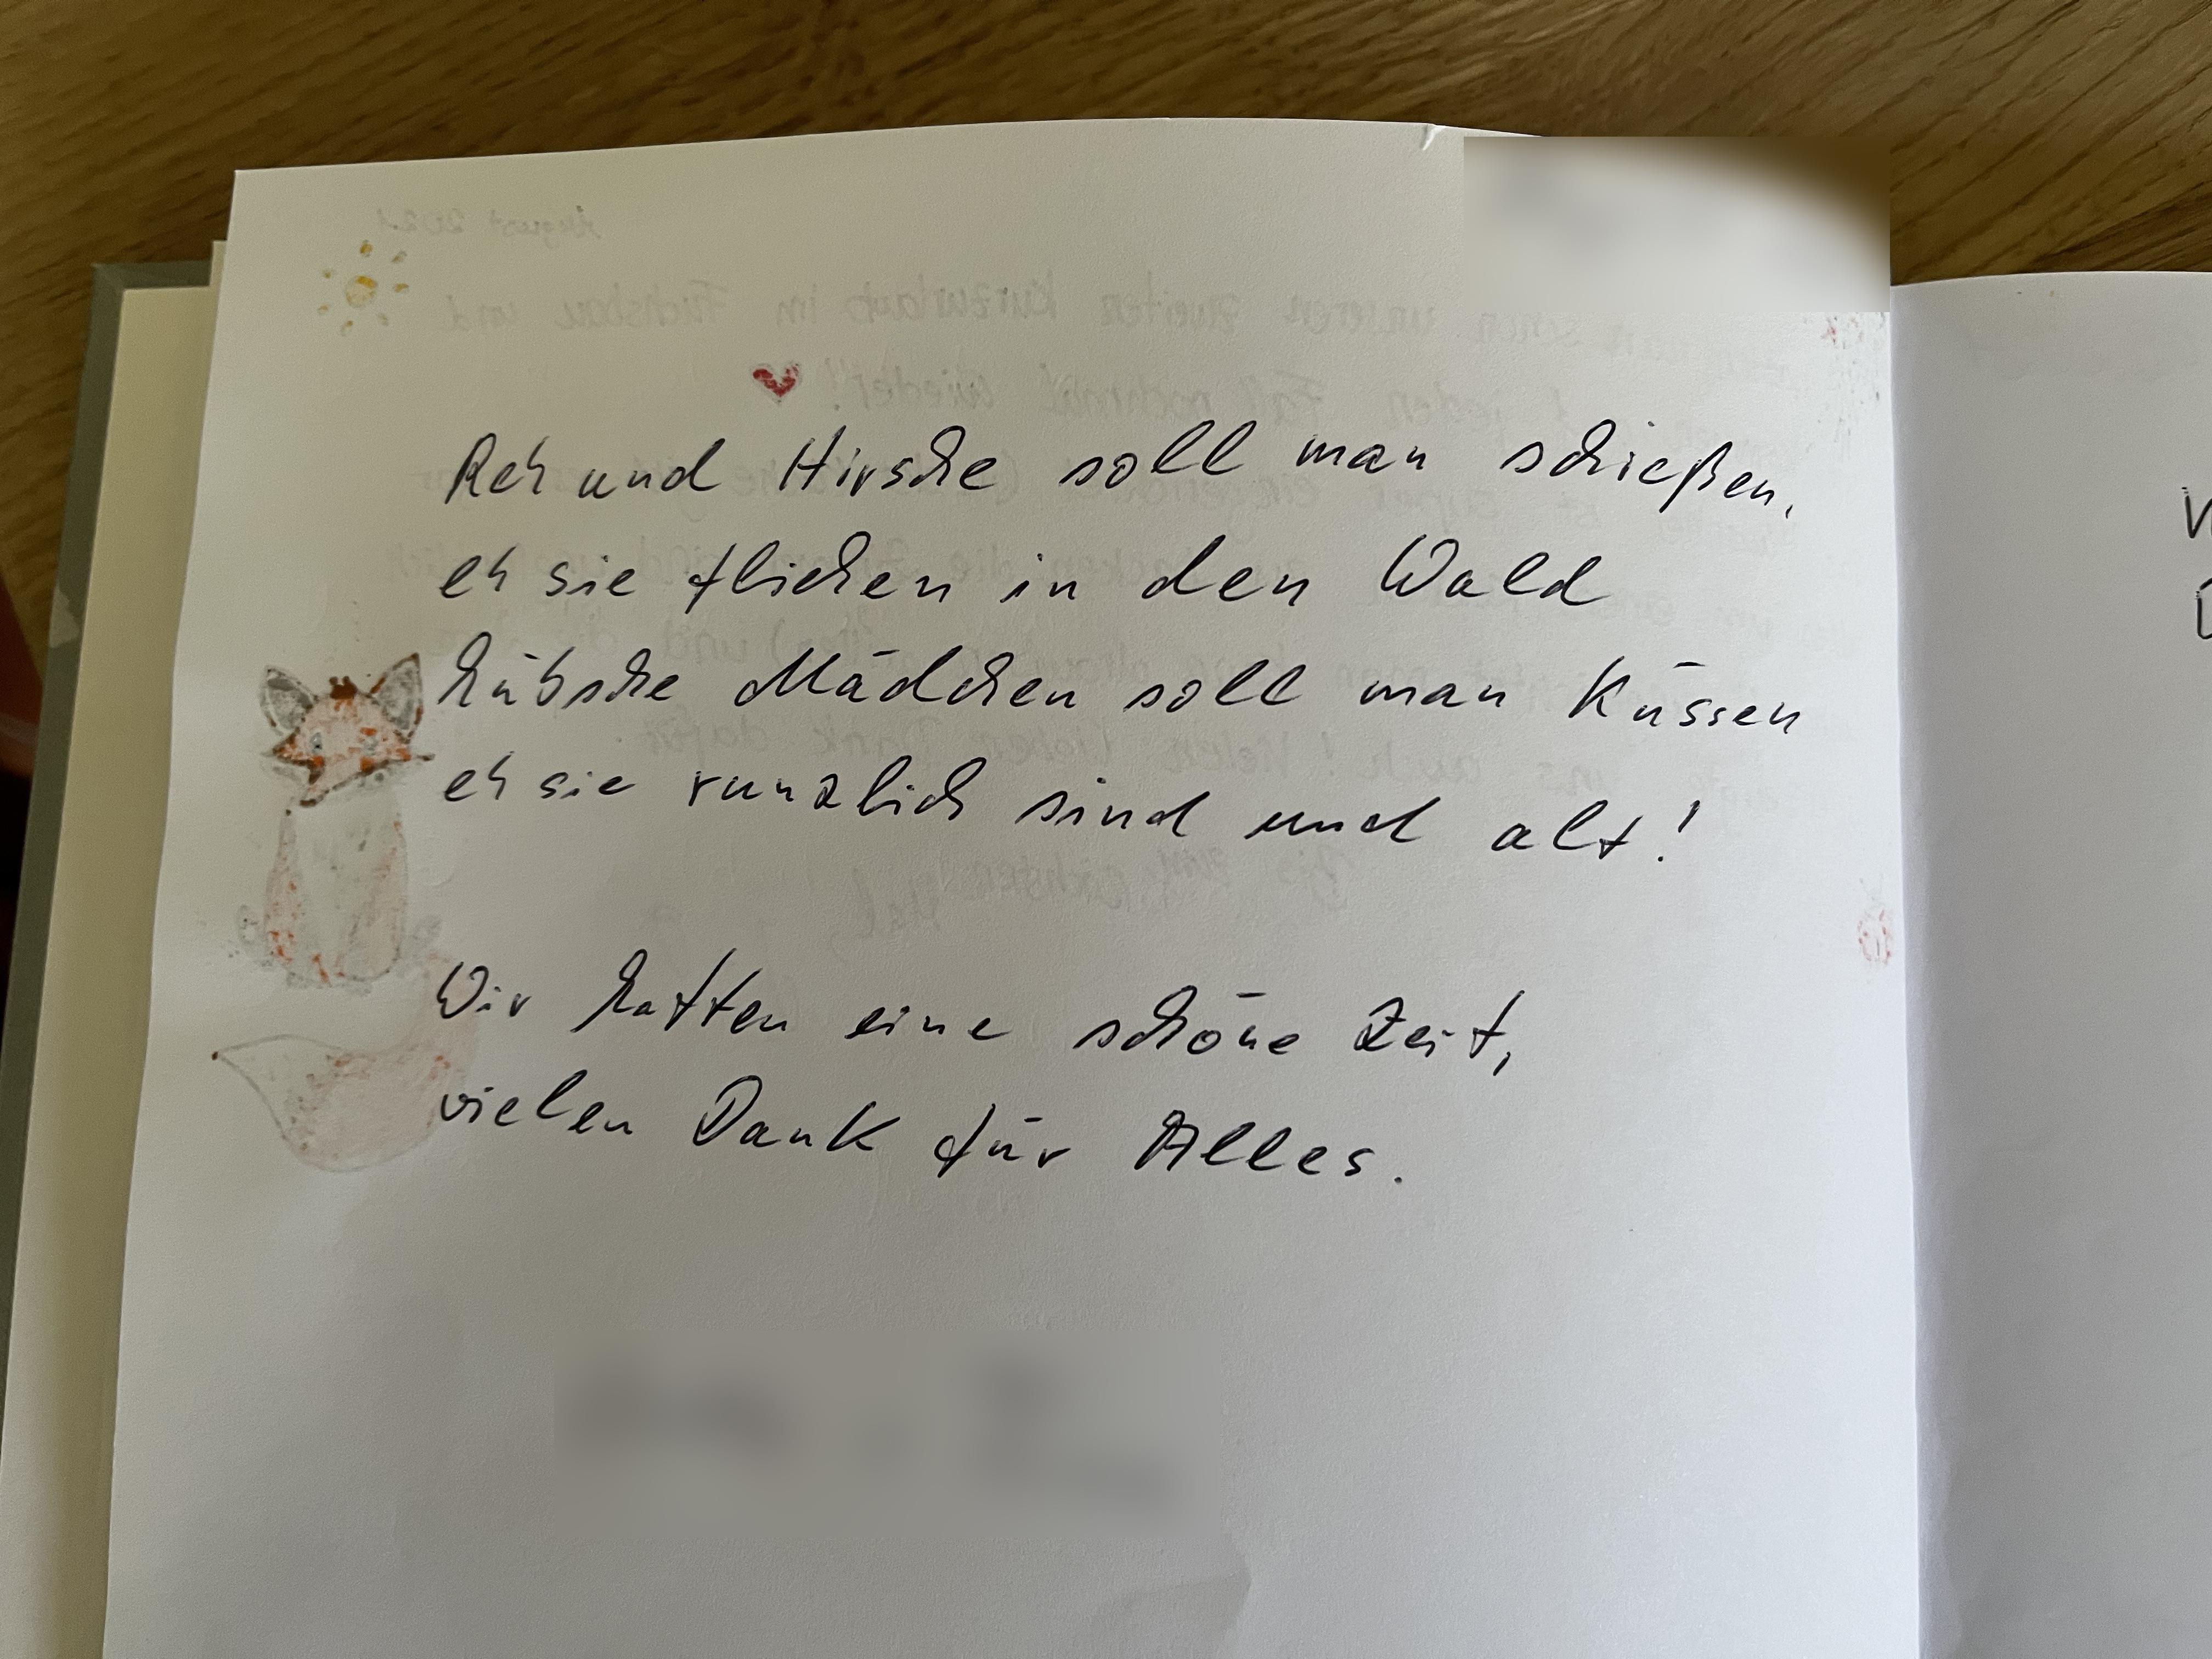 Reh und Hirsche soll man schießen,
eh sie fliehen in den Wald
hübsche Mädchen soll man Küssen
eh sie runzlich sind und alt!
Wir hatten eine schöne Zeit,
vielen Dank für Alles.